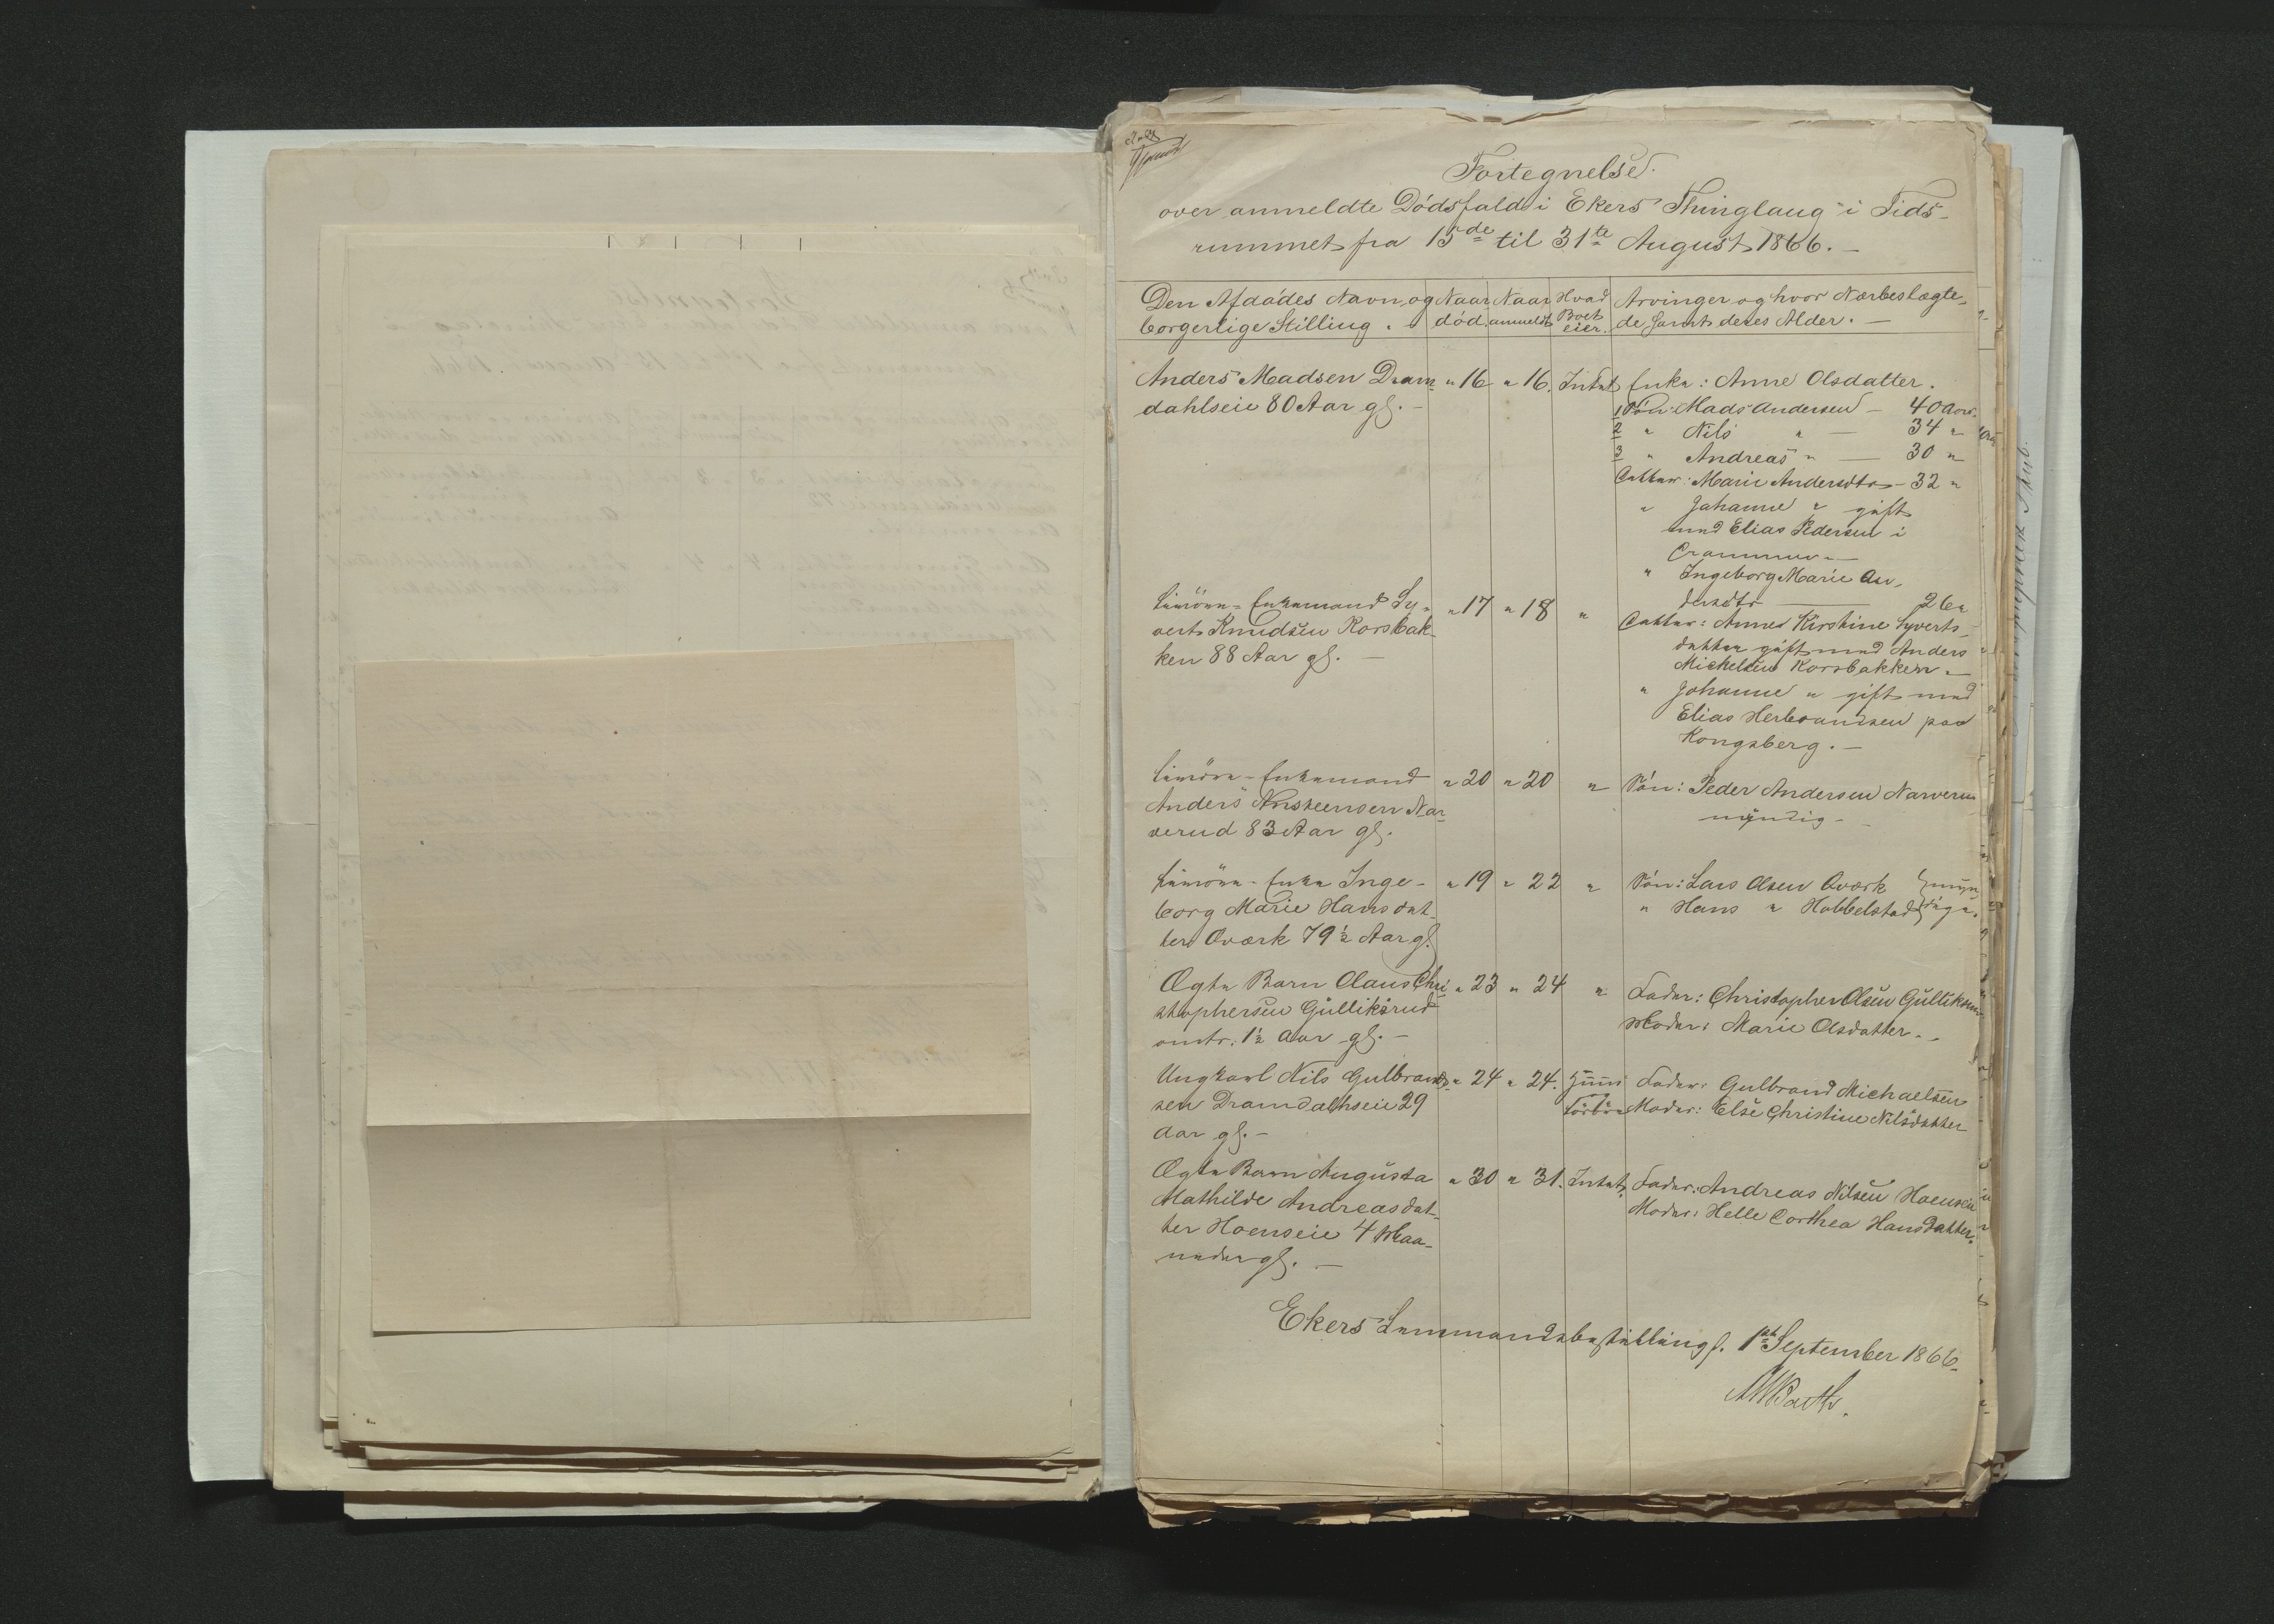 Fortegnelse
over anmeldte Dödsfald i Ekers Thinglaug i Tids-
rummet fra 15de til 31te August 1866. –
Den Afdödes Navn og
borgerlige Stilling.
Naar
död
Naar
anmeldt
Hvad
Boet
eier.
Arvinger og hvor Nærbeslægte-
de samt deres Alder. –
Anders Madsen Dram-
dahlseie 80 Aar gl. –
" 16 " 16. Intet
Enke: Anne Olsdatter.
1 Sön: Mads Andersen – 40 Aar.
2 " Nils " — 34 "
3 " Andreas " — 30 "
Datter: Marie Andersdtr – 32 "
" Johanne " gift
med Elias Pedersen i
Drammen –
" Ingeborg Marie An-
dersdtr — 26 "
Enkemand Sy-
vert Knudsen Korsbak-
ken 88 Aar gl. –
" 17 " 18 "
Datter: Anne Kirstine Syverts-
datter gift med Anders
Michelsen Korsbakken –
" Johanne " gift med
Elias Herbrandsen paa
Kongsberg. –
Enkemand
Anders Anskeensen Nar-
verud 83 Aar gl.
" 20 " 20 "
Sön: Peder Andersen Narverud
myndig –
Enke Inge-
borg Marie Hansdat-
ter Aværk 79½ Aar gl.
" 19 " 22 "
Sön: Lars Olsen Oværk } myn
" Hans " Hobbelstad } dige.
Ægte Barn Olaus Chri
stophersen Gulliksrud
omtr. 1½ Aar gl. –
" 23 " 24 "
Fader: Christopher Olsen Gulliksrud
Moder: Marie Olsdatter. –
Ungkarl Nils Gulbrand-
sen Dramdahlseie 29
Aar gl. –
" 24 " 24.
Fader: Gulbrand Michaelsen
Moder: Else Christine Nilsdatter
Ægte Barn Augusta
Mathilde Andreasdat-
ter Hoenseie 4 Maa-
neder gl. –
" 30 " 31. Intet.
Fader: Andreas Nilsen Hoenseie
Moder: Helle Dorthea Hansdatter.
Ekers Lensmandsbestilling d. 1ste September 1866.